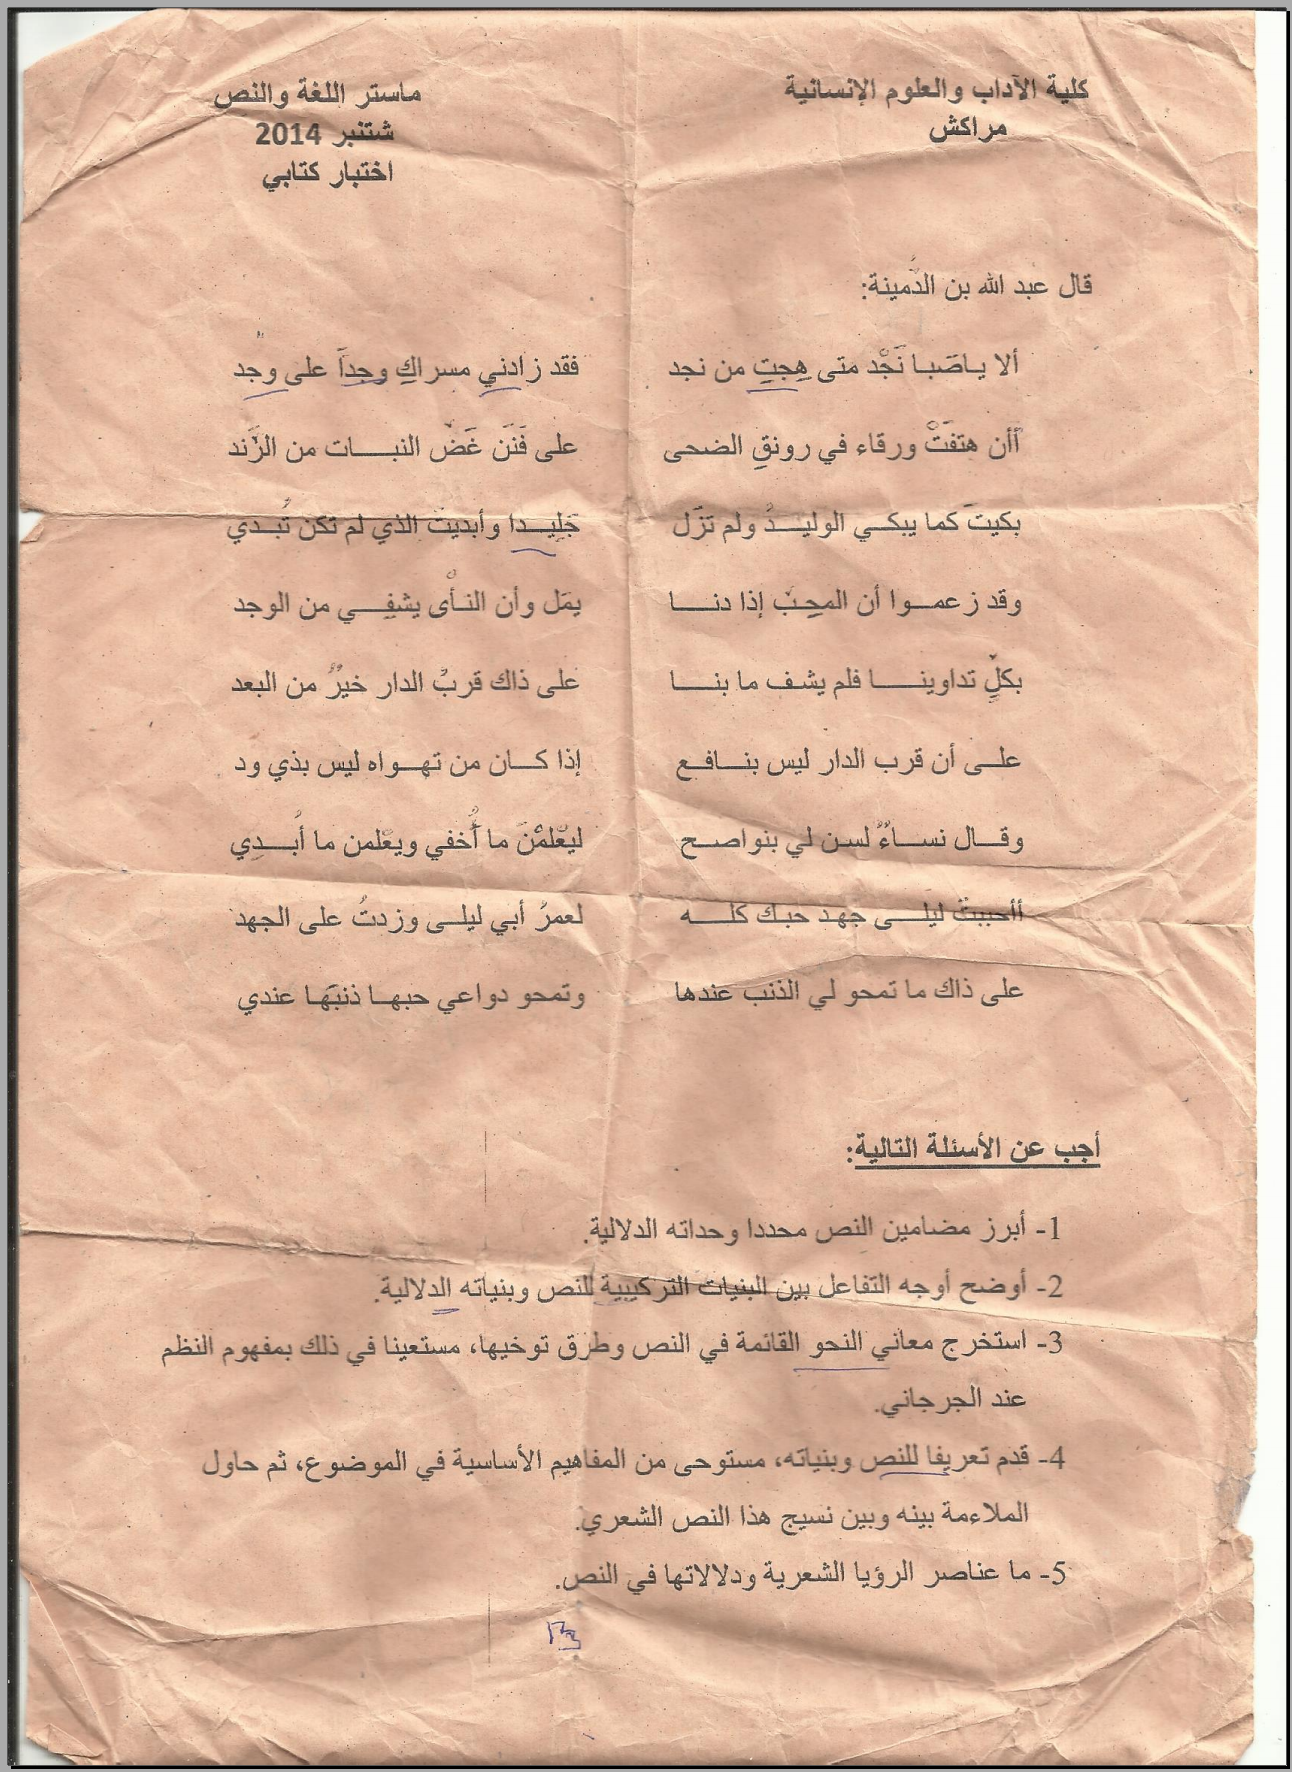 كلية الآداب والعلوم الإنسانية
مراكش
ماستر اللغة والنص
شتنبر 2014
اختبار كتابي
قال عبد الله بن الدُمينة:
ألا ياصَبا نَجْد متى هِجتِ من نجد فقد زادني مسراكِ وجداً على وجد
أأن هتفَتْ ورقاء في رونقِ الضحى على فَنَن غَضّ النبات من الرَّند
بكيتَ كما يبكي الوليدُ ولم تزَل جَلِيدا وأبديتَ الذي لم تكن تُبدي
وقد زعموا أن المحِبّ إذا دنا يمَل وأن النأْى يشفِي من الوجد
بكلِّ تداوينا فلم يشف ما بنا على ذاك قربُ الدار خيرٌ من البعد
على أن قرب الدار ليس بنافع إذا كان من تهواه ليس بذي ود
وقال نساءٌ لسن لي بنواصح ليَعْلمْنَ ما أُخفي ويعْلمن ما أُبدِي
أأحببتَ ليلى جهد حبك كله لعمرُ أبي ليلى وزدتُ على الجهد
على ذاك ما تمحو لي الذنب عندها وتمحو دواعي حبها ذنبَها عندي
أجب عن الأسئلة التالية:
1- أبرز مضامين النص محددا وحداته الدلالية.
2- أوضح أوجه التفاعل بين البنيات التركيبية للنص وبنياته الدلالية.
3- استخرج معاني النحو القائمة في النص وطرق توخيها، مستعينا في ذلك بمفهوم النظم
عند الجرجاني.
4- قدم تعريفا للنص وبنياته، مستوحى من المفاهيم الأساسية في الموضوع، ثم حاول
الملاءمة بينه وبين نسيج هذا النص الشعري.
5- ما عناصر الرؤيا الشعرية ودلالاتها في النص.